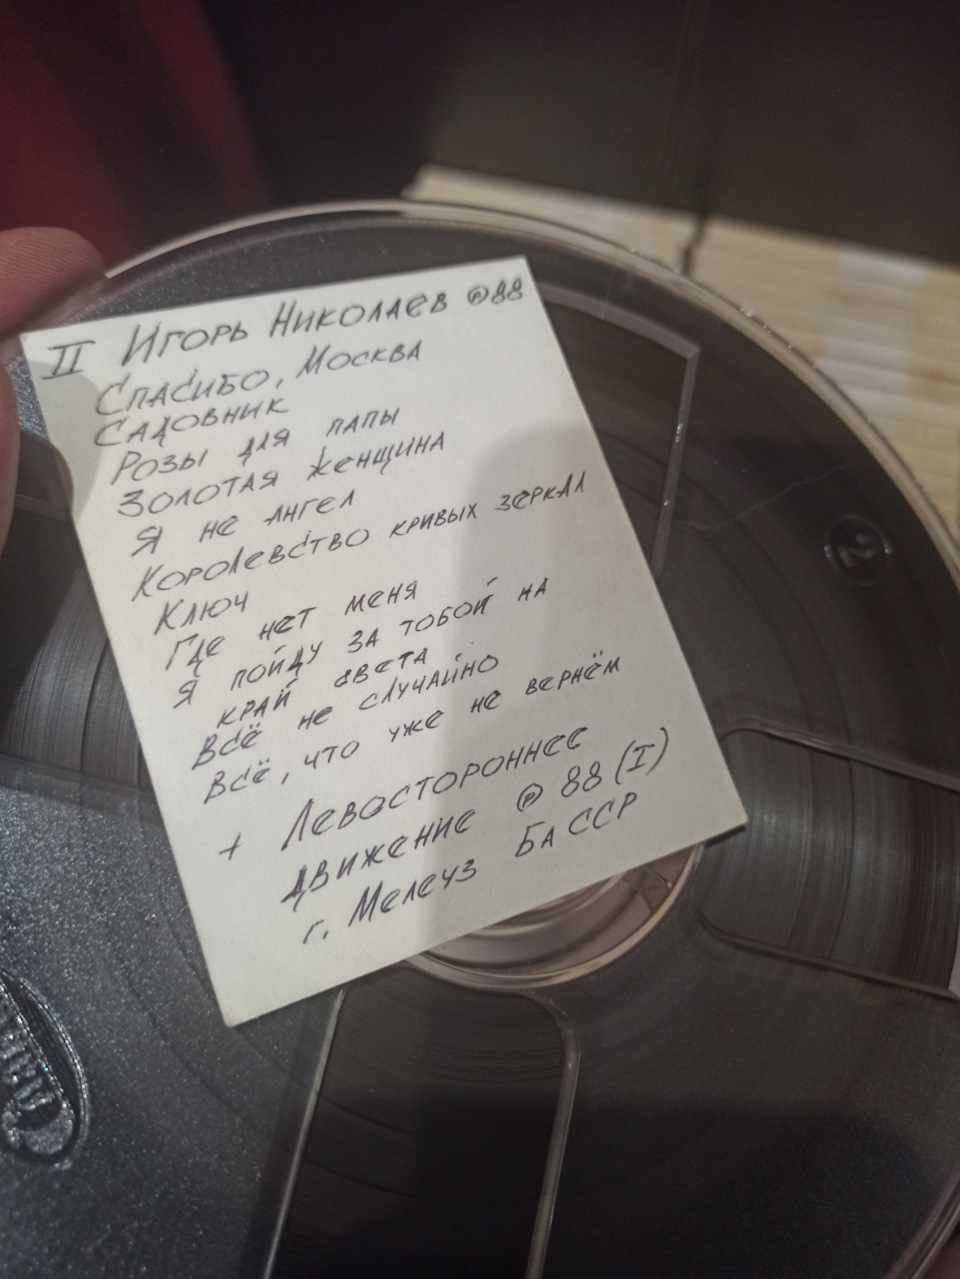 II Игорь Николаев ℗88
Спасибо, Москва
Садовник
Розы для папы
Золотая женщина
Я не ангел
Королевство кривых зеркал
Ключ
Где нет меня
Я пойду за тобой на
край света
Всё не случайно
Всё, что уже не вернём
+ Левостороннее
движение ℗ 88 (I)
г. Мелеуз БаССР
2